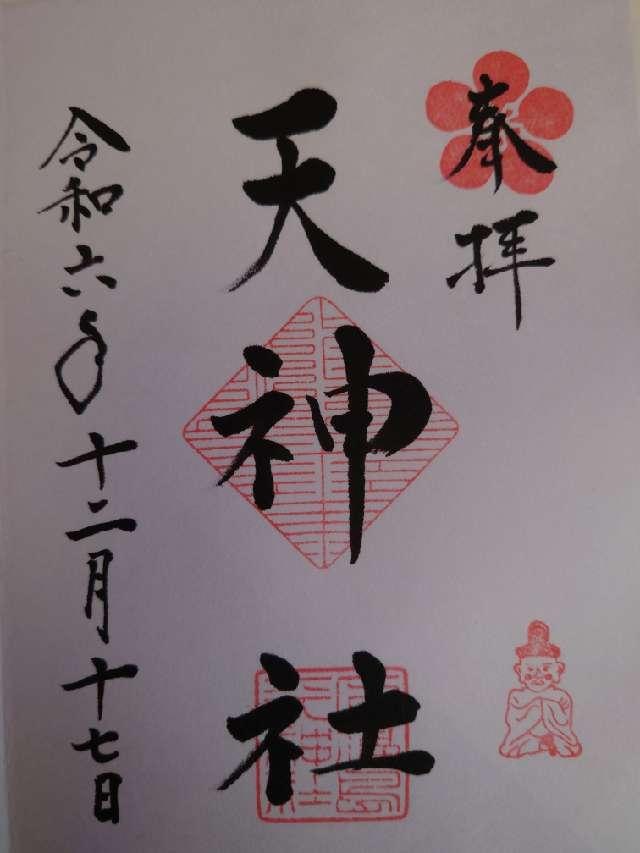 奉拝
天神社
令和六年十二月十七日